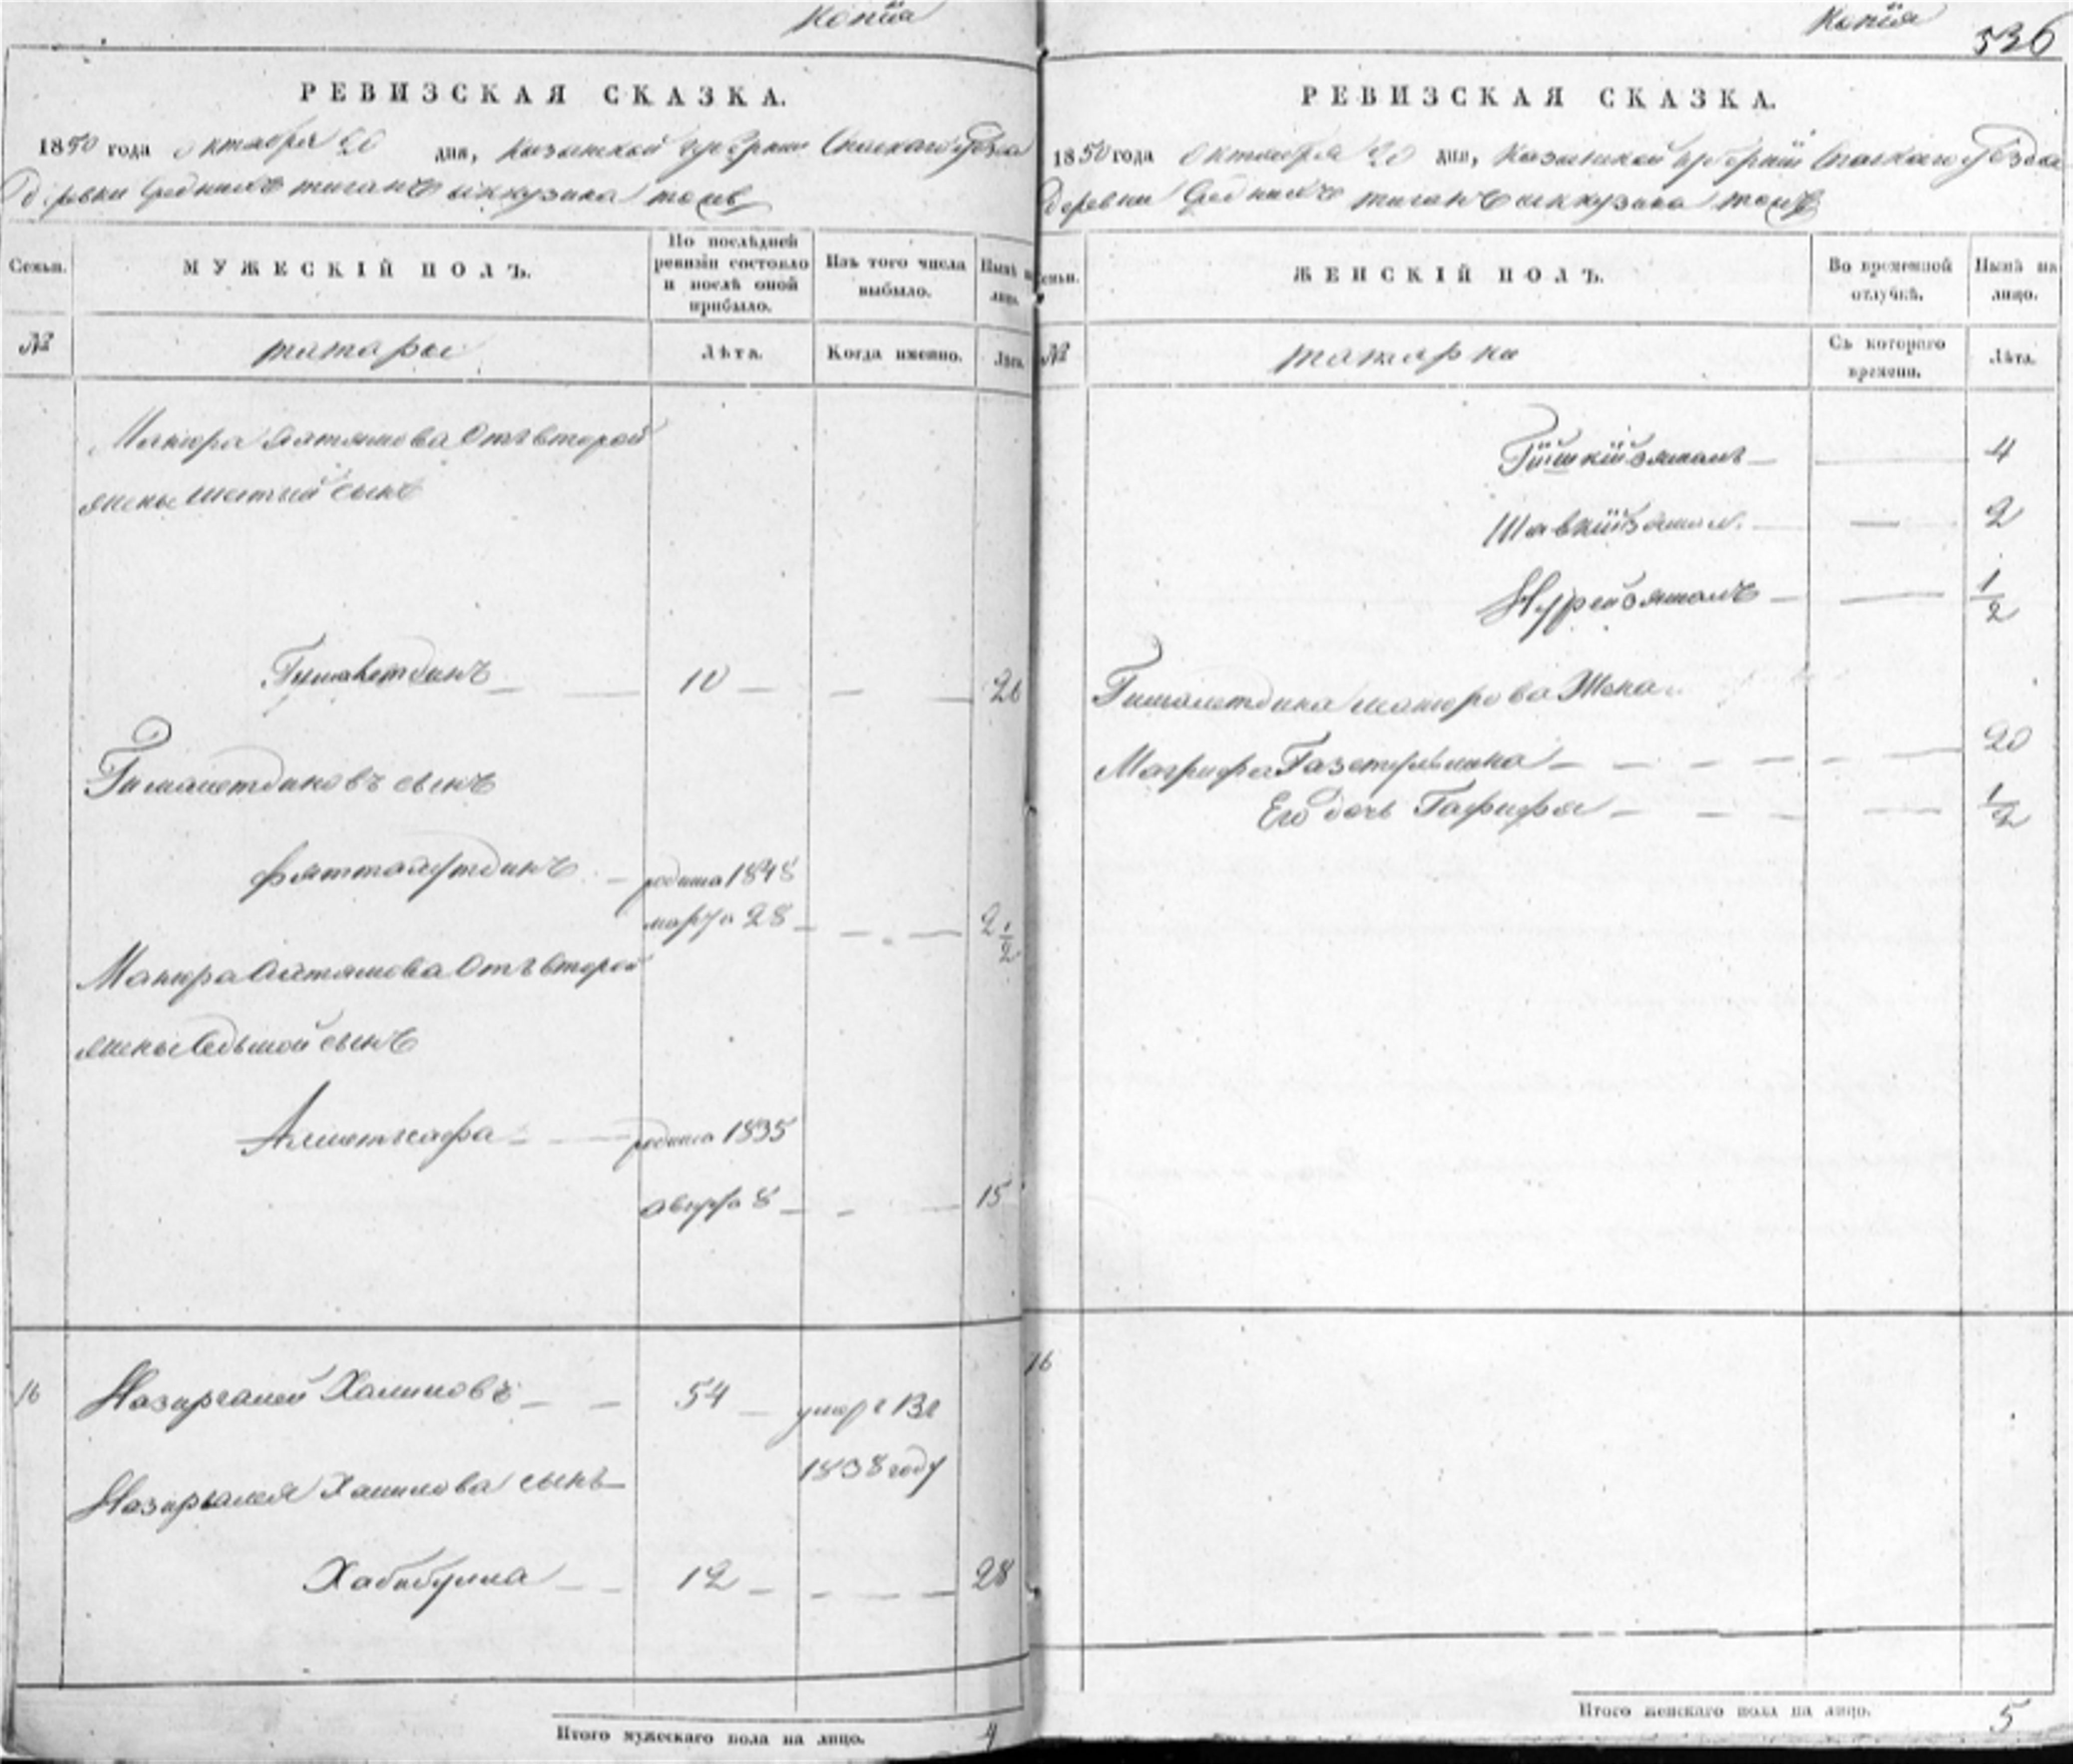 Копія
РЕВИЗСКАЯ СКАЗКА.
1850 года октября 20 дня, Казанской губерніи Спаскаго уѣзда
Деревни Среднихъ тиганъ тожъ
Семьи. МУЖЕСКІЙ ПОЛЪ. По послѣдней ревизіи состояло и послѣ оной прибыло. Изъ того числа выбыло. Нынѣ на лицо.
№ татары Лѣта. Когда именно. Лѣта.
Манюра Аитямова Отъ второй
жены шестый сынъ
10 26
Гималетдиновъ сынъ
Фяттахутдинъ родился 1848
марта 28 2 1/2
Манюра Аитямова Отъ второй
жены седьмой сынъ
Ахметсафа родился 1835
августа 8 15
16 Назиргалей Халиловъ 54 умеръ въ
1838 году
Назиргалея Халилова сынъ
Хабибулла 12 28
Итого мужескаго пола на лицо. 4
Копія 536
РЕВИЗСКАЯ СКАЗКА.
1850 года Октября 20 дня, Казанской губерніи Спаскаго уѣзда
Деревни Среднихъ тиганъ тожъ
Семьи. ЖЕНСКІЙ ПОЛЪ. Во временной отлучкѣ. Нынѣ на лицо.
№ татарки Съ котораго времени. Лѣта.
4
2
Нурейзямалъ 1/2
Гималетдина манюрова Жена
Магруфа 20
Его дочь Гафифа 1/2
16
Итого женскаго пола на лицо. 5